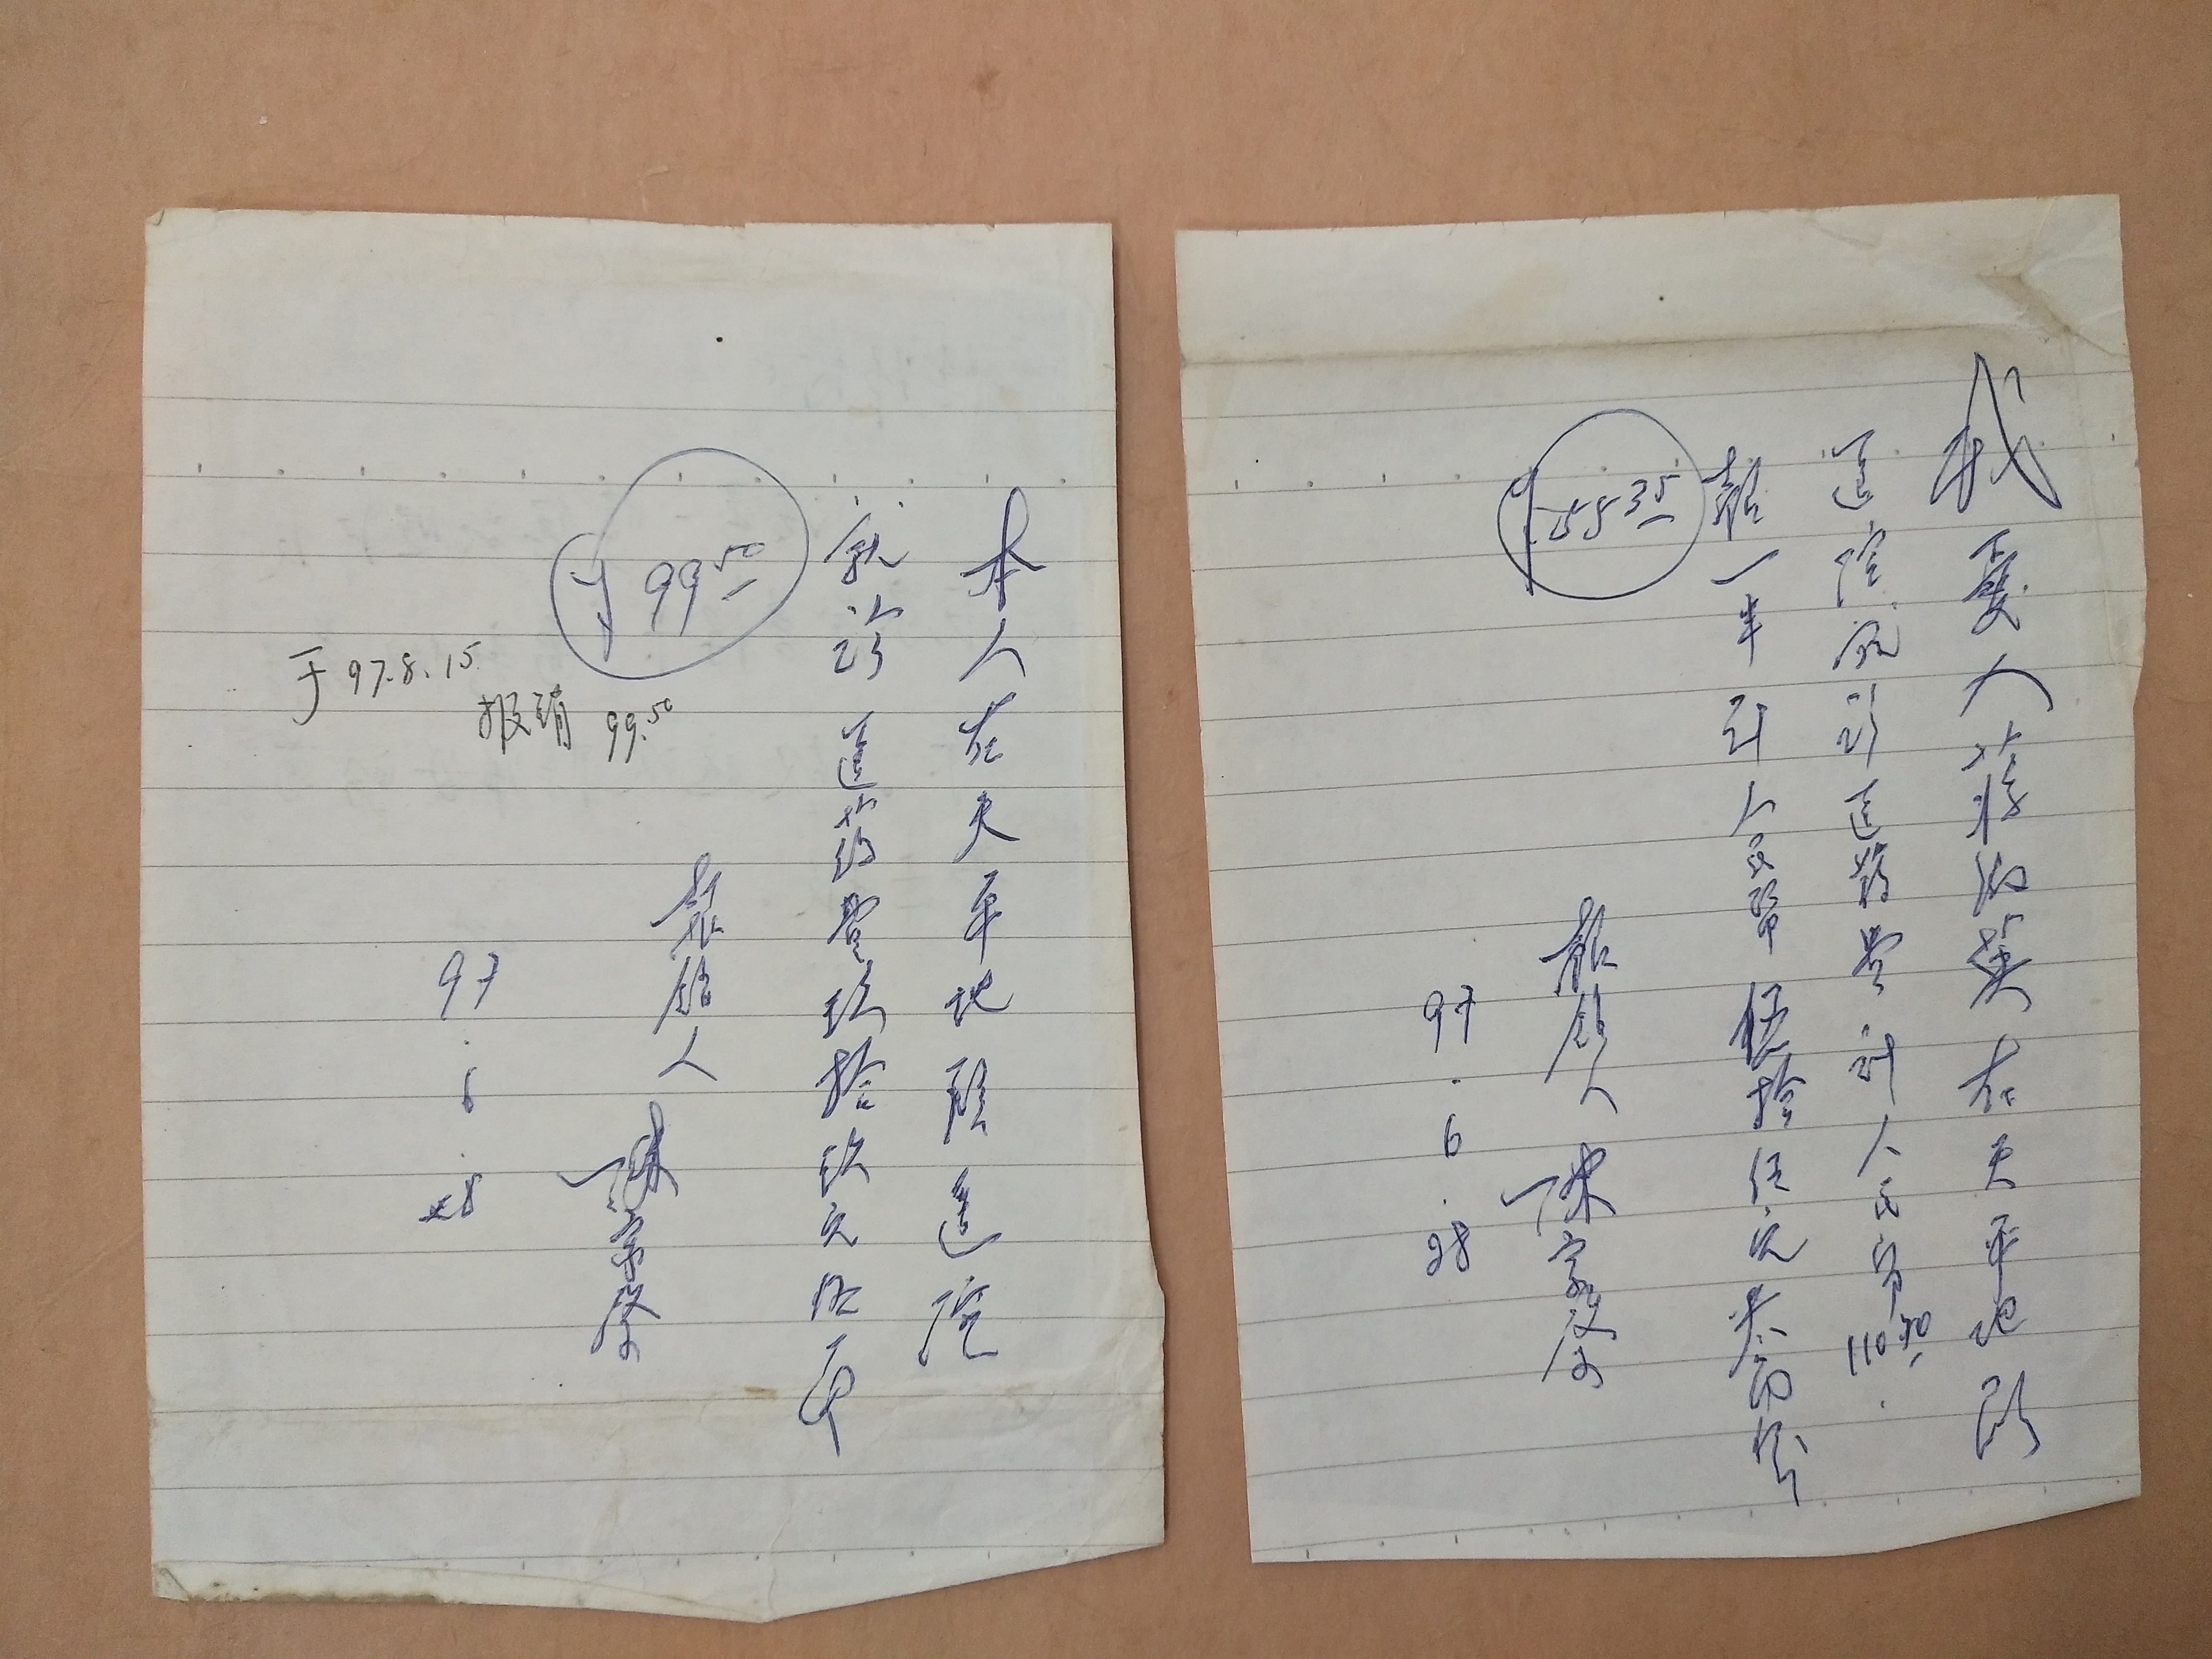 我爱人蒋 英在天平地段
医院就诊医药费计人民币110.70
报一半 计人民币伍拾伍元叁角伍分
¥55.35
报销人 陈家
97.6.28
本人在天平地段医院
就诊 医药费玖拾玖元伍角
¥99.50
于97.8.15
报销 99.50
报销人 陈家
97.6.28